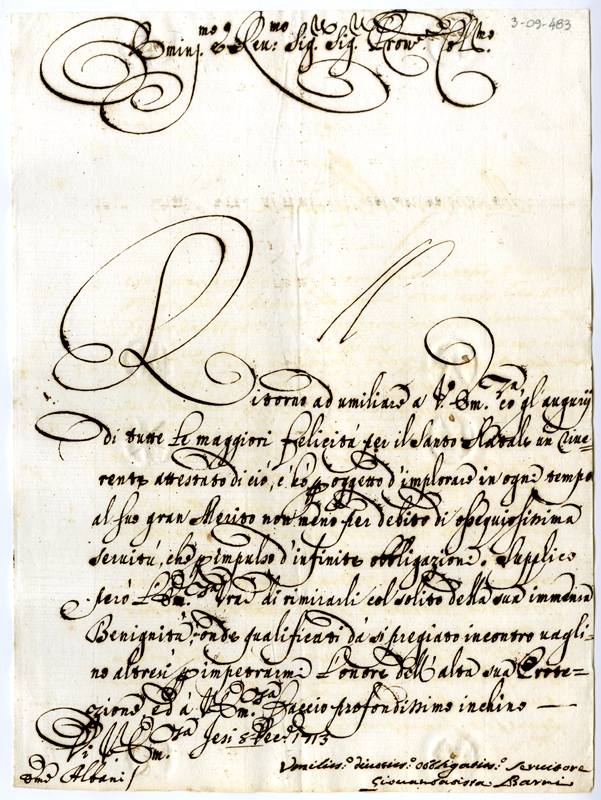 3-09-483
Emin.mo e Reu:mo Sig. Sig. Pron. Coll.mo
Ritorno ad umiliare a V. Em.za cō gl'augurij
di tutte le maggiori felicità per il Santo Natale un riue=
rente attestato di ciò, c'hò p oggetto d'implorare in ogni tempo
al suo gran Merito non meno per debito di ossequiosissima
seruitù, che p impulso d'infinite obbligazioni. Supplico
però l'Em.za Vra di rimirarli col solito della sua immensa
Benignità, onde qualificati da sì pregiato incontro uagli=
no altresì p impetrarmi l'onore dell'alta sua Prote=
zione ed à V. Em.za Faccio profondissimo inchino —
Di V. Em.za Jesi 8 Xec. 1713
Emo Albani
Vmiliss.o diuotiss.o obligatiss.o seruitore
Giouanbatista Barni